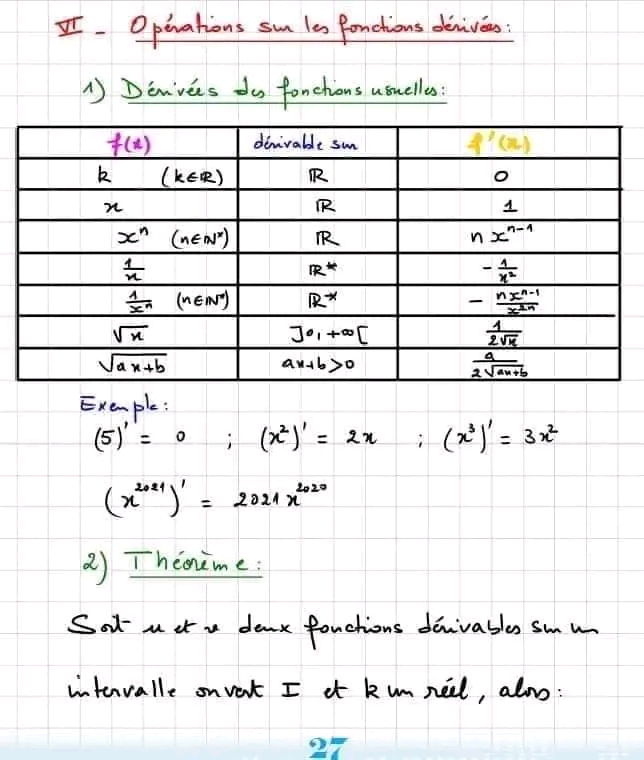 VI - Opérations sur les fonctions dérivées:
1) Dérivées des fonctions usuelles:
f(x) dérivable sur f'(x)
k (k∈ℝ) ℝ 0
x ℝ 1
xⁿ (n∈ℕ*) ℝ n xⁿ⁻¹
1/x ℝ* -1/x²
1/xⁿ (n∈ℕ*) ℝ* - nxⁿ⁻¹/x²ⁿ
√x ]0,+∞[ 1/2√x
√ax+b ax+b>0 a/2√ax+b
Exemple:
(5)' = 0 ; (x²)' = 2x ; (x³)' = 3x²
(x²⁰²¹)' = 2021x²⁰²⁰
2) Théorème:
Soit u et v deux fonctions dérivables sur un
intervalle ouvert I et k un réel, alors:
27